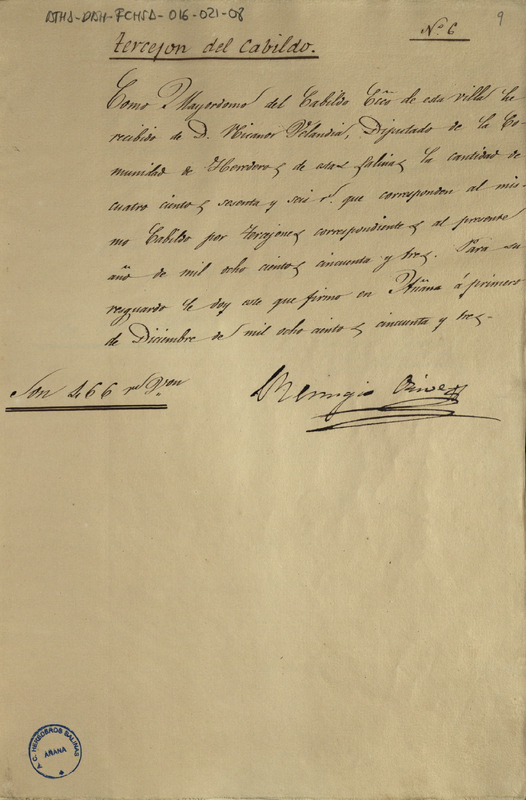 ATHA-DAH-FCHSA-016-021-08
Nº 6
9
tercejon del Cabildo.
Como Mayordomo del Cabildo Ecco de esta villa he
recibido de D. Nicanor Velandia, Diputado de la Co-
munidad de Herederos de estas Salinas la cantidad de
cuatro cientos sesenta y seis rs. que corresponden al mis-
mo Cabildo por tercejones correspondientes al presente
año de mil ocho cientos cincuenta y tres. Para su
resguardo le doy este que firmo en Añana á primero
de Diciembre de mil ocho cientos cincuenta y tres.
Son 466 rs. Von
Remigio
A.C. HEREDEROS SALINAS
AÑANA